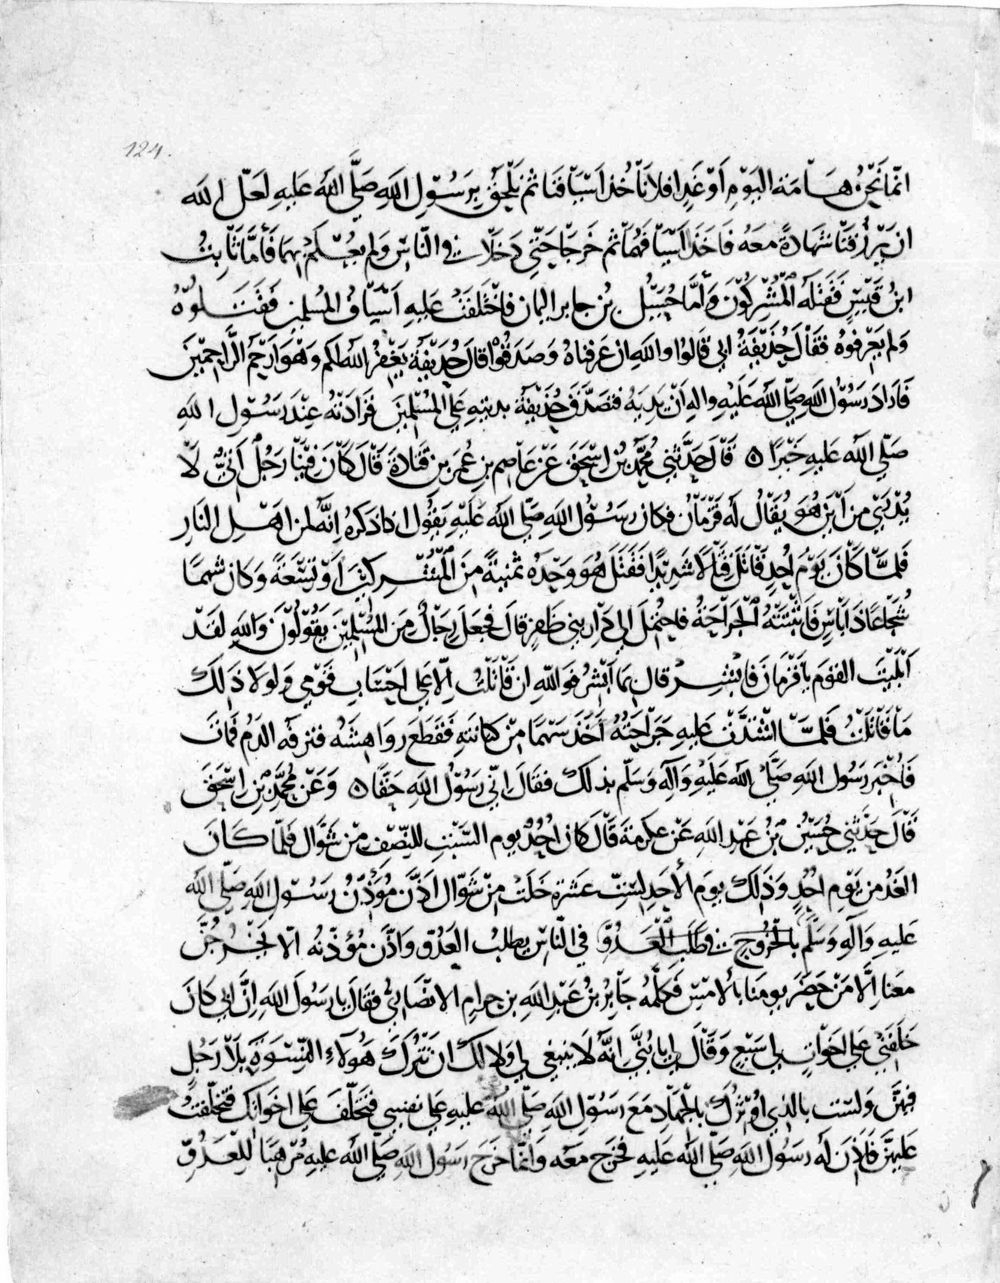 124.
انما نحن هامة اليوم او غد افلا ناخذ اسيافنا ثم نلحق برسول الله صلى الله عليه لعل الله
ان يرزقنا شهادة معه فاخذ اسيافهما ثم خرجا حتى دخلا في الناس ولم يعلم بهما فأما ثابت
ابن قيس فقتله المشركون وأما حسيل بن جابر اليمان فاختلفت عليه اسياف المسلمين فقتلوه
ولم يعرفوه فقال حذيفة ابي قالوا والله ان عرفناه وصدقوا قال حذيفة يغفر الله لكم وهو ارحم الراحمين
فاراد رسول الله صلى الله عليه واله ان يديه فتصدق حذيفة بديته على المسلمين فزادته عند رسول الله
صلى الله عليه خيرا ٥ قال حدثني محمد بن اسحق عن عاصم بن عمر بن قتادة قال كان فينا رجل اتي لا
يدري من اين هو يقال له قزمان فكان رسول الله صلى الله عليه يقول اذا ذكره انه لمن اهل النار
فلما كان يوم احد قاتل قتالا شديدا فقتل هو وحده ثمنية من المشركين او تسعة وكان شهما
شجاعا ذا بأس فاثبتته الجراحة فاحتمل الى دار بني ظفر قال فجعل رجال من المسلمين يقولون والله لقد
ابليت اليوم يا قزمان فابشر قال بما ابشر فوالله ان قاتلت الا على احساب قومي ولولا ذلك
ما قاتلت فلما اشتدت عليه جراحته اخذ سهما من كنانته فقطع رواهشه فنزفه الدم فمات
فاخبر رسول الله صلى الله عليه وآله وسلم بذلك فقال اني رسول الله حقا ٥ وعن محمد بن اسحق
قال حدثني حسين بن عبد الله عن عكرمة قال كان احد يوم السبت للنصف من شوال فلما كان
الغد من يوم احد وذلك يوم الأحد لست عشرة خلت من شوال اذن مؤذن رسول الله صلى الله
عليه وآله وسلم بالخروج في طلب العدو في الناس بطلب العدو واذن مؤذنه الا يخرجن
معنا الا من حضر يومنا بالامس فكلمه جابر بن عبد الله بن حرام الانصاري فقال يا رسول الله ان ابي كان
خلفني على اخوات لي سبع وقال لي يا بني انه لا ينبغي لي ولا لك ان نترك هولاء النسوة بلا رجل
فيهن ولست بالذي اوثرك بالجهاد مع رسول الله صلى الله عليه على نفسي فتخلف على اخواتك فتخلفت
عليهن فاذن له رسول الله صلى الله عليه فخرج معه وانما خرج رسول الله صلى الله عليه مرهبا للعدو